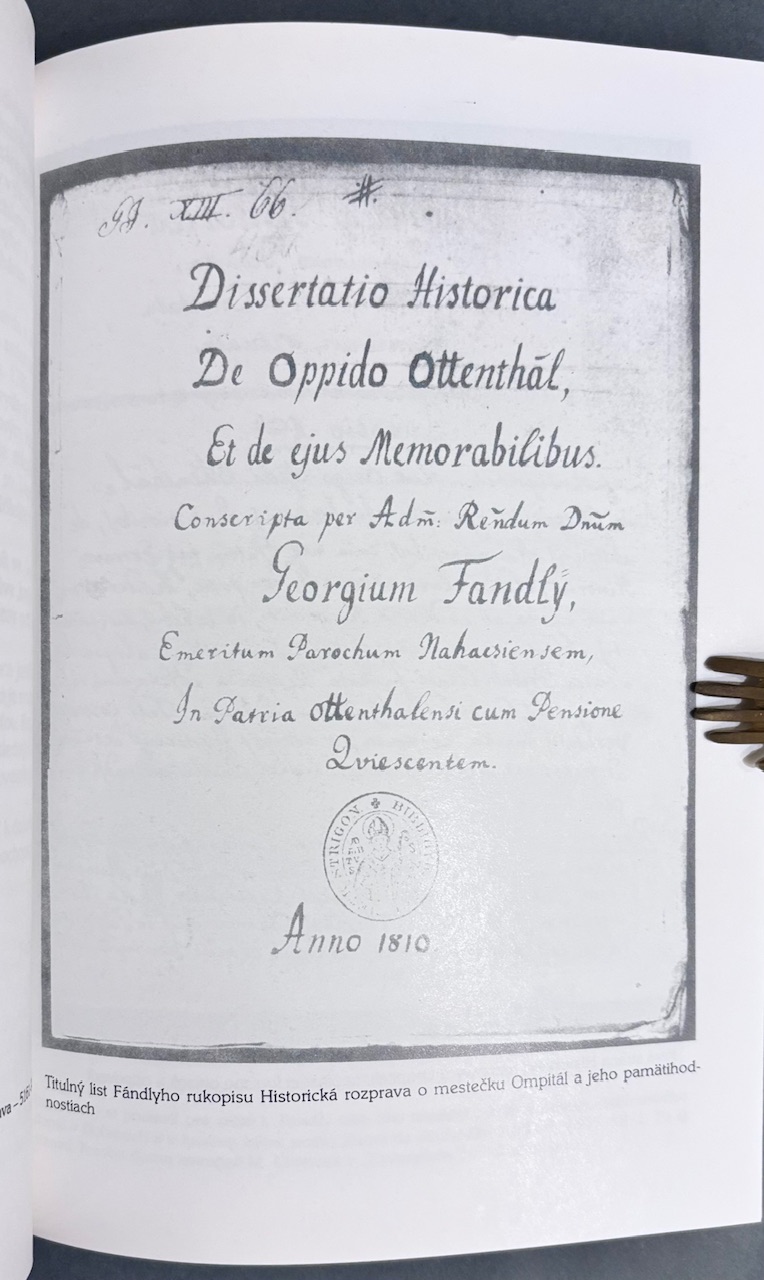 GJ. XIII. 66. #.
Dissertatio Historica
De Oppido Ottenthál,
Et de ejus Memorabilibus.
Conscripta per Adm̃: Reñdum Dnũm
Georgium Fandlÿ,
Emeritum Parochum Nahacsiensem,
In Patria Ottenthalensi cum Pensione
Qviescentem.
STRIGON. ✚ BIBLIO
Anno 1810.
Titulný list Fándlyho rukopisu Historická rozprava o mestečku Ompitál a jeho pamätihod-
nostiach